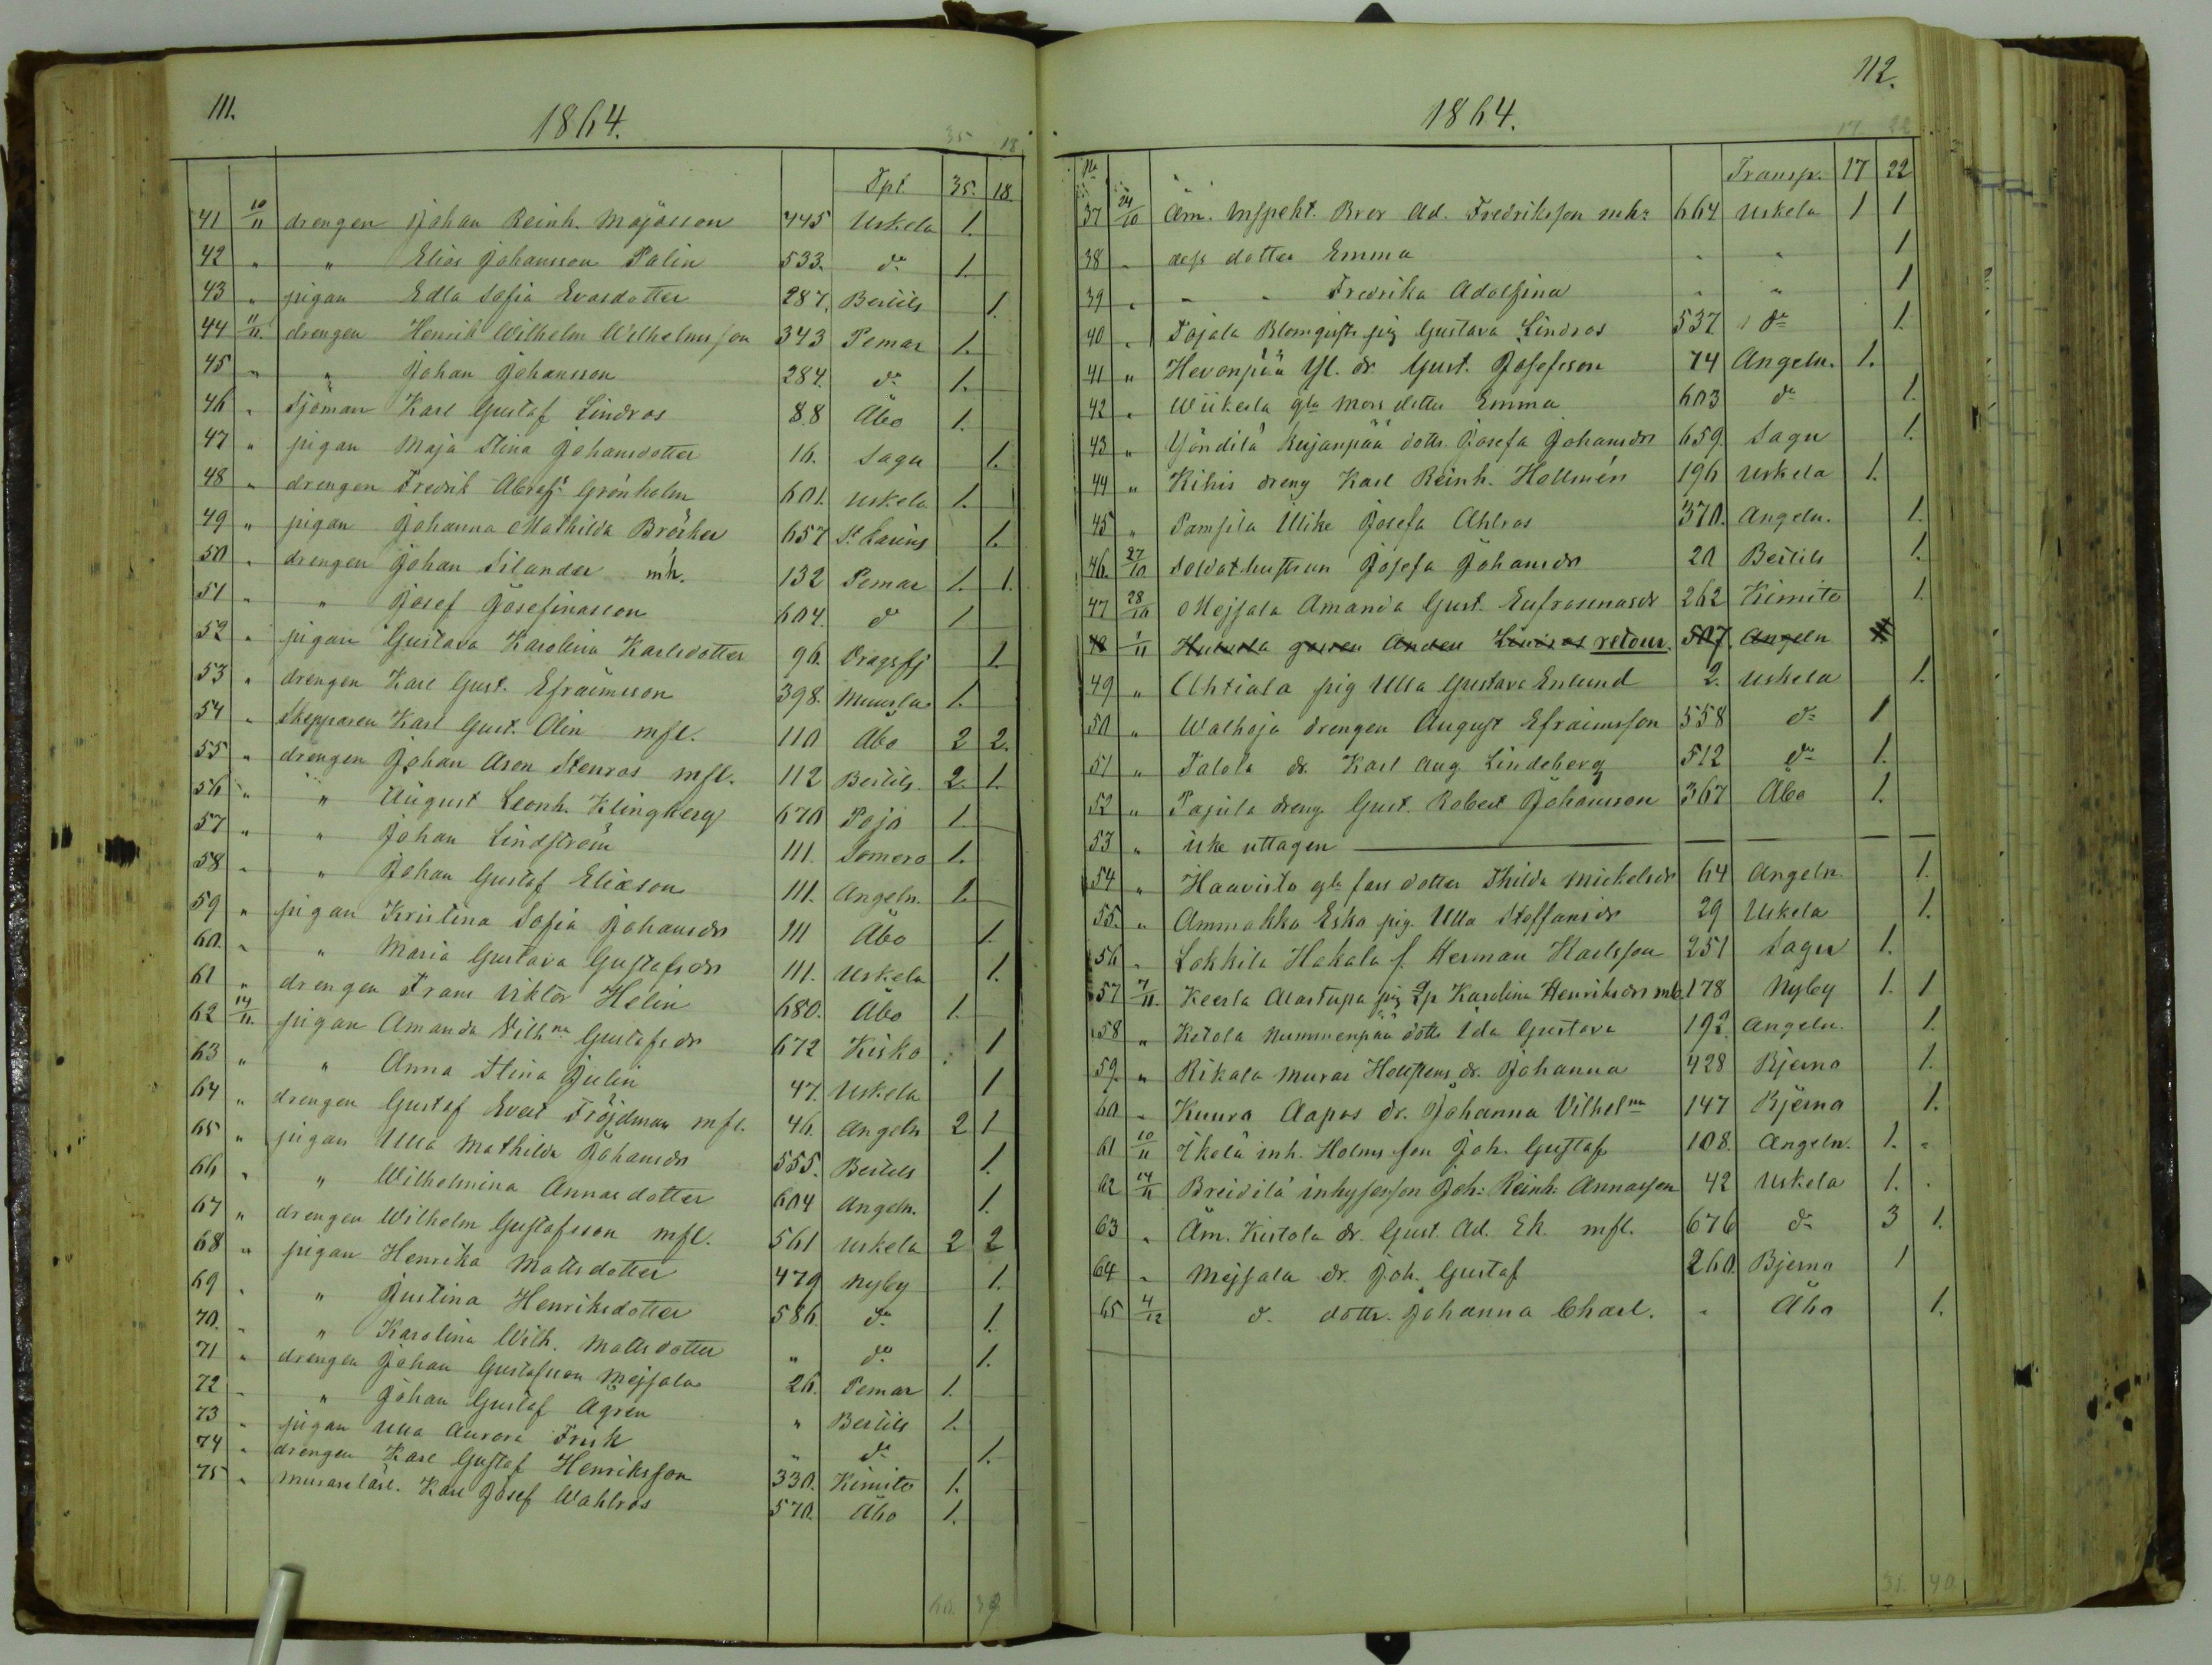 111.
1864.
35 18
Tpt 35. 18.
41 10/11 drengen Johan Reinh. Majasson 445 Uskela 1.
42 " " Elias Johansson Palin 533. do 1.
43 " pigan Edla Sofia Evasdotter 287. Bertils 1.
44 11/11. drengen Henrik Wilhelm Wilhelmsson 343 Pemar 1.
45 " " Johan Johansson 284. do 1.
46 " Sjöman Karl Gustaf Lindros 88 Åbo 1.
47 " pigan Maja Stina Johansdotter 16. Sagu 1.
48 " drengen Fredrik Grönholm 601. Uskela 1.
49 " pigan Johanna Mathilda Bröcker 657 St. Karins 1.
50 " drengen Johan Silander mh. 132 Pemar 1. 1.
51 " " Josef Josefinasson 604. d 1
52 " pigan Gustava Karolina Karlsdotter 96. Dragsfj 1.
53 " drengen Karl Gust. Efraimsson 398. Muurla 1.
54 " Skepparen Karl Gust. Olin mfl. 110 Åbo 2 2.
55 " drengen Johan Aron Stenros mfl. 112 Bertils. 2. 1.
56 " " August Leonh. Klingberg 670 Pojo 1.
57 " " Johan Lindström 111. Somero 1.
58 " " Johan Gustaf Eliasson 111. Angeln. 1.
59 " pigan Kristina Sofia Johansdr 111 Åbo 1.
60. " " Maria Gustava Gustafsdr 111. Uskela 1.
61 " drengen Frans Viktor Helin 680. Åbo 1.
62 14/11. pigan Amanda Vilhna Gustafsdr 672 Kisko 1
63 " " Anna Stina Julin 47. Uskela 1
64 " drengen Gustaf Evert Fröjdman mfl. 46. Angeln 2 1
65 " pigan Ulla Mathilda Johansdr 555. Bertils 1.
66 " " Wilhelmina Annasdotter 604 Angeln. 1.
67 " drengen Wilhelm Gustafsson mfl. 561 Uskela 2 2
68 " pigan Henrika Mattsdotter 479 Nyby 1.
69 " " Justina Henriksdotter 586. do 1.
70. " " Karolina Wilh. Mattsdotter " do 1.
71 " drengen Johan Gustafsson Mejjala 26. Pemar 1.
72 " " Johan Gustaf Ågren " Bertils 1.
73 " pigan Ulla Aurora Frisk " do 1.
74 " drengen Karl Gustaf Henriksson 330. Kimito 1.
75 " murarelärl. Karl Josef Wahlros 570. Åbo 1.
60. 39
112.
1864.
17 22
No Transp. 17 22
37 24/10 Äm. Inspekt. Bror Ad. Fredriksson mh: 664 Uskela 1 1
38 " dess dotter Emma " " 1
39 " " " Fredrika Adolfina " " 1
40 " Pajala Blomqvists pig Gustava Lindros 537 do 1.
41 " Hevonpää Yl. dr. Gust. Josefsson 74 Angeln. 1.
42 " Wiikerla gla mors dotter Emma 603 do 1.
43 " Yöndilä Kujanpää dottr. Josefa Johansdr 659 Sagu 1.
44 " Kihis dreng Karl Reinh. Hollmén 196 Uskela 1.
45 " Pampila Ulike Josefa Ahlros 370. Angeln. 1.
46. 27/10 Soldathustrun Josefa Johansdr 20 Bertils 1.
47 28/10 Mejjala Amanda Gust. Eufrosinasdr 262 Kimito 1.
48 1/11 Lindros retour. 507. Angeln
49 " Ahtiala pig Ulla Gustava Enlund 2. Uskela 1.
50 " Walhoja drengen August Efraimsson 558 do 1
51 " Talola dr. Karl Aug. Lindeberg 512 do 1.
52 " Pajula dreng. Gust. Robert Johansson 367 Åbo 1.
53 " icke uttagen
54 " Haavisto gla fars dotter Thilda Mickelsdr 64 Angeln. 1.
55. " Ammakka Esko pig. Ulla Staffansdr 29 Uskela 1.
56 " Lokkila Hakala f. Herman Karlsson 251 Sagu 1.
57 7/11. Keerla Alastupa pig Karolina Henriksdr mb. 178 Nyby 1. 1
58 " Ketola Nummenpää dottr Ida Gustava 192. Angeln. 1.
59. " Rikala murar Hollstens dr. Johanna 428 Bjerno 1.
60 " Kuura Aapas dr. Johanna Vilhelna 147 Bjerno 1.
61 10/11 Ikola inh. Holms son Joh. Gustaf 108. Angeln. 1. "
62 14/11 Breidilä inhysesson Joh: Reinh: Annasson 42 Uskela 1. "
63 " Äm. Kistola dr. Gust. Ad. Ek. mfl. 676 do 3 1.
64 " Mejjala dr. Joh. Gustaf 260. Bjerno 1
65 4/12 d. dottr. Johanna Charl. " Åbo 1.
31. 40.